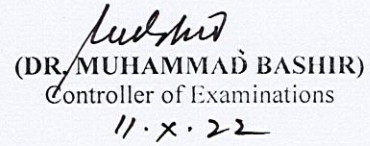 (DR. MUHAMMAD BASHIR)
Controller of Examinations
11.x.22